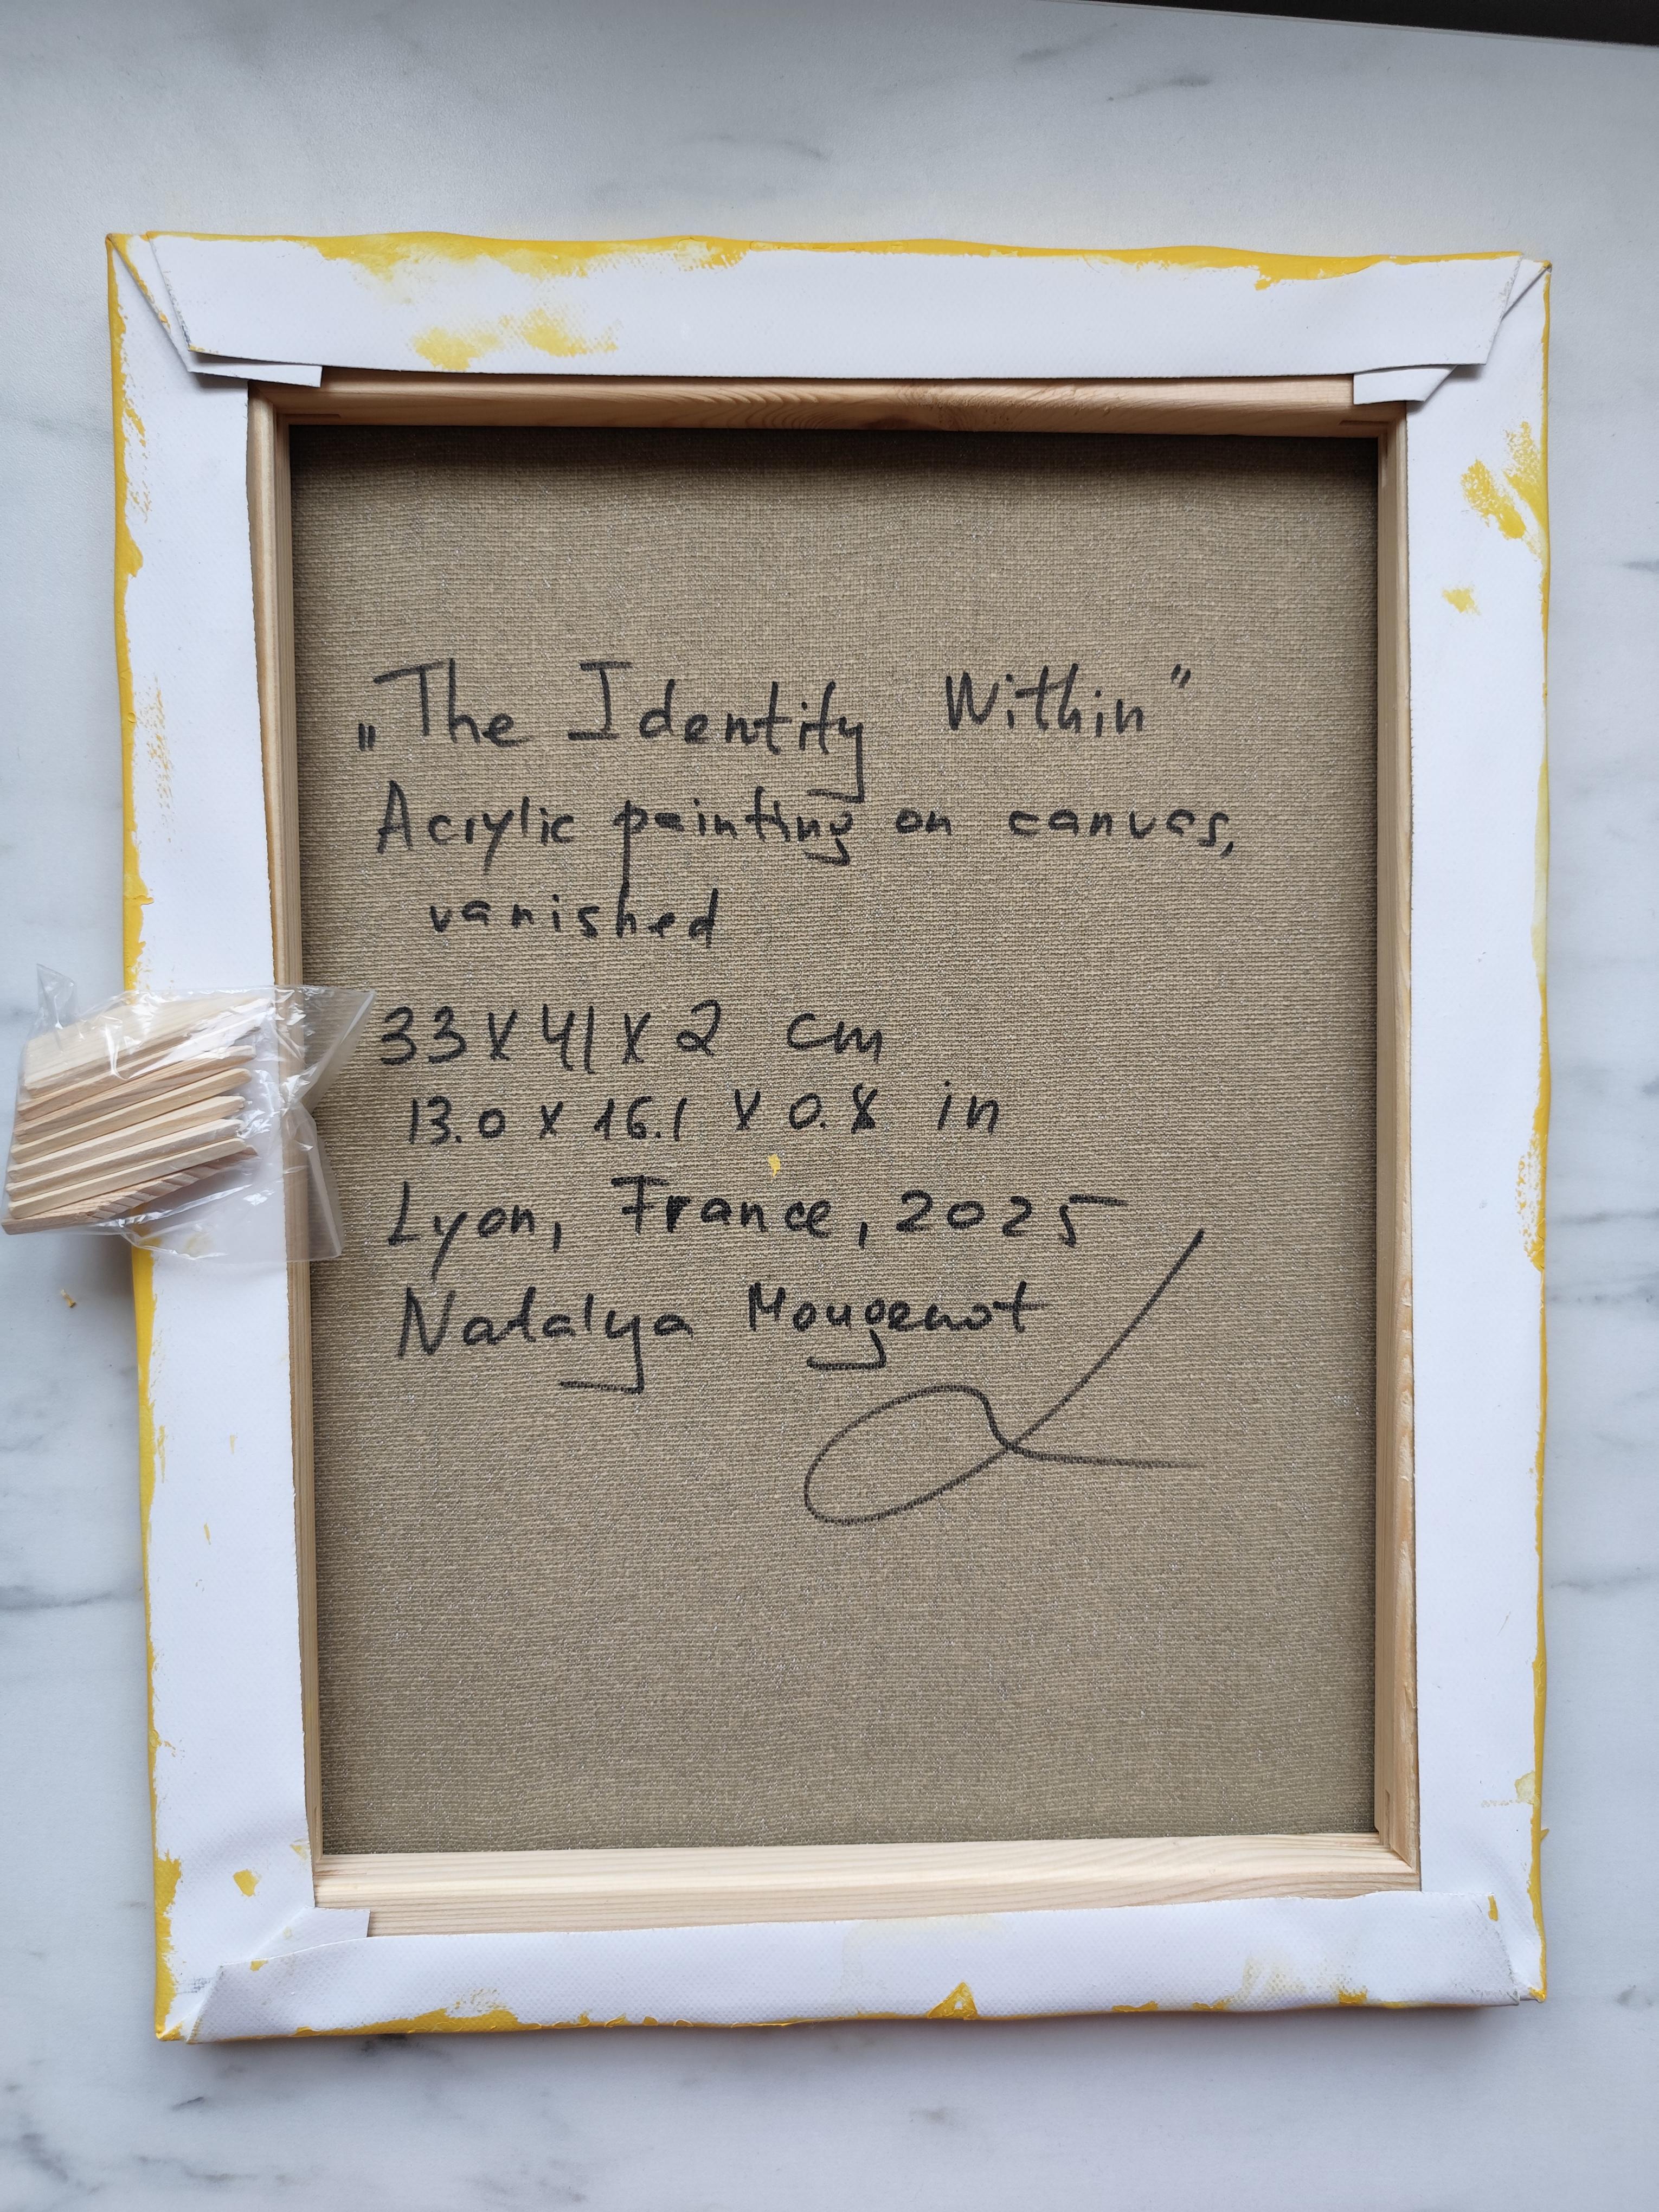 „The Identity Within"
Acrylic painting on canvas,
vanished
33 x 41 x 2 cm
13.0 x 16.1 x 0.8 in
Lyon, France, 2025
Natalya Mougenot